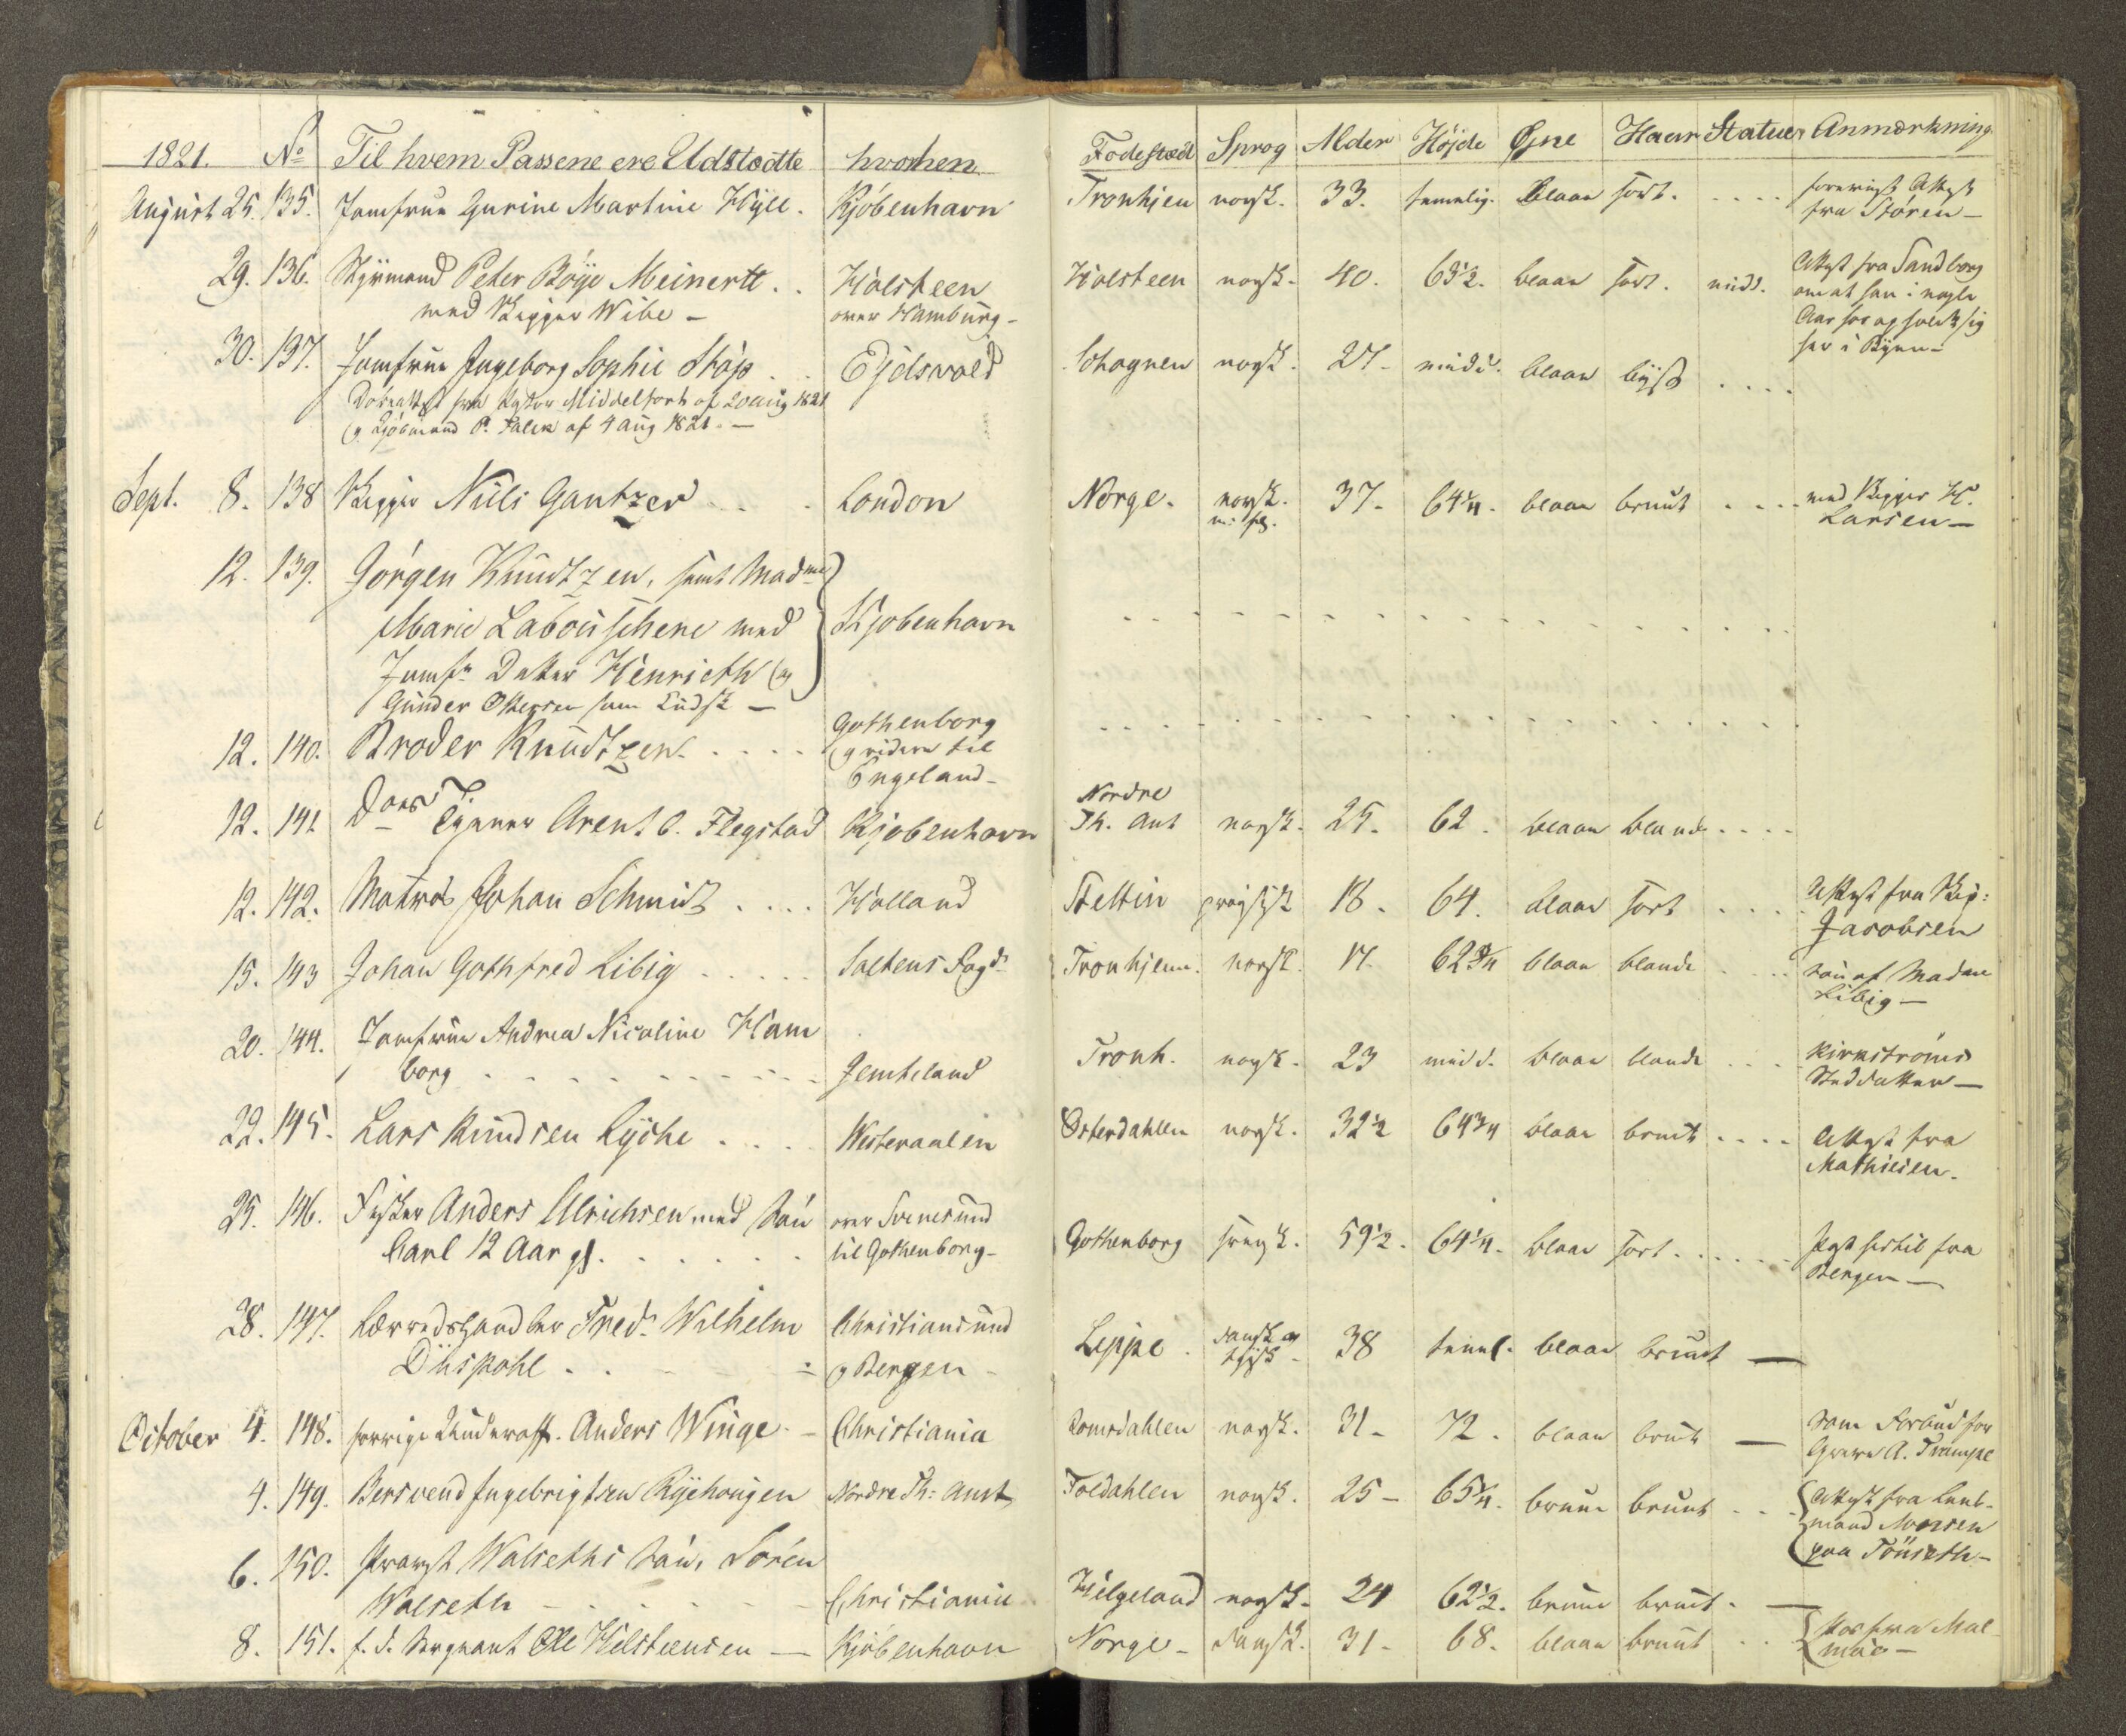 1821. No Til hvem Passene ere Udstædte hvorhen Fødestæd Sprog Alder Højde Øjne Haar Statuer Anmærkning
August 25. 135. Jomfrue Gurine Martine Hÿll. Kjøbenhavn Tronhjem norsk. 33. temelig. blaae sort. forevist Attest
fra Støren
29. 136. Styrmand Peter Böye Meinertt Holsteen Holsteen norsk. 40. 63½. blaae sort. midd. Attest fra Sandborg
med Skipper Wibe over Hamburg om at han i nogle
Aar har opholdt sig
her i Byen
30. 137. Jomfrue Ingeborg Sophie Støp Ejdsvold norsk. 27 midd. blaae lÿst
af 20 aug 1821
og Kjøbmand P. Falck af 4 aug 1821.
Sept. 8. 138 Skipper Niels Gantzer London Norge. norsk. 37 64¼. blaae bruunt med Skipper H.
Larsen
12. 139. Jörgen Knudtzen, samt Madme
Marie Labouschere med Kjøbenhavn
Jomfr Datter Henrieth og
Gunder
12. 140. Broder Knudtzen Gothenborg
og videre til
Engeland
12. 141 Tjener Arent C. Flegstad Kjøbenhavn Nordre
Th. Amt norsk. 25. 62. blaae blonde
12. 142. Matros Johan Schmidt Holland Stettin 18. 64. blaae sort Attest fra Skip:
Jacobsen
15. 143 Johan Gothfred Libig Saltens Fogd. Tronhjem. norsk. 17. 62¾ blaae blonde Søn af Madme
Libig
20. 144. Jomfrue Andrea Nicoline Ham
borg Jemteland Tronh. norsk. 23 midd. blaae blonde Kirkströms
Steddatter
22. 145. Lars Knudsen Lÿche Westeraalen Østerdahlen norsk. 32½ 64¾ blaae bruunt Attest fra
Mathiesen.
25. 146. Anders Ulrichsen med Søn over Svinesund
Carl 12 Aar gl. til Gothenborg Gothenborg svensk. 59½. 64¼. blaae sort. Pass hertil fra
Bergen
28. 147. Lærredshandler Fredr. Wilhelm Christiansund
Düspohl og Bergen Leppe dansk og
tÿsk 38 temel. blaae bruunt
October 4. 148. forrige Underoff. Anders Winge Christiania Romsdahlen norsk. 31 72. blaae bruunt Som Forbud for
Greve A. Trampe
4. 149. Bersvend Ingebrigtsen Rÿehougen Nordre Th: Amt Foldahlen norsk. 25 65¼. bruune bruunt Attest fra Lens-
mand Monsen
paa Tönseth
6. 150. Provst Walseths Søn, Sören
Walseth Christiania Helgeland norsk. 24 62½. bruune bruunt.
8. 151. f. d. Sergeant Ole Helstensen Kjøbenhavn Norge dansk. 31 68. blaae bruunt Pas fra Mal
möe